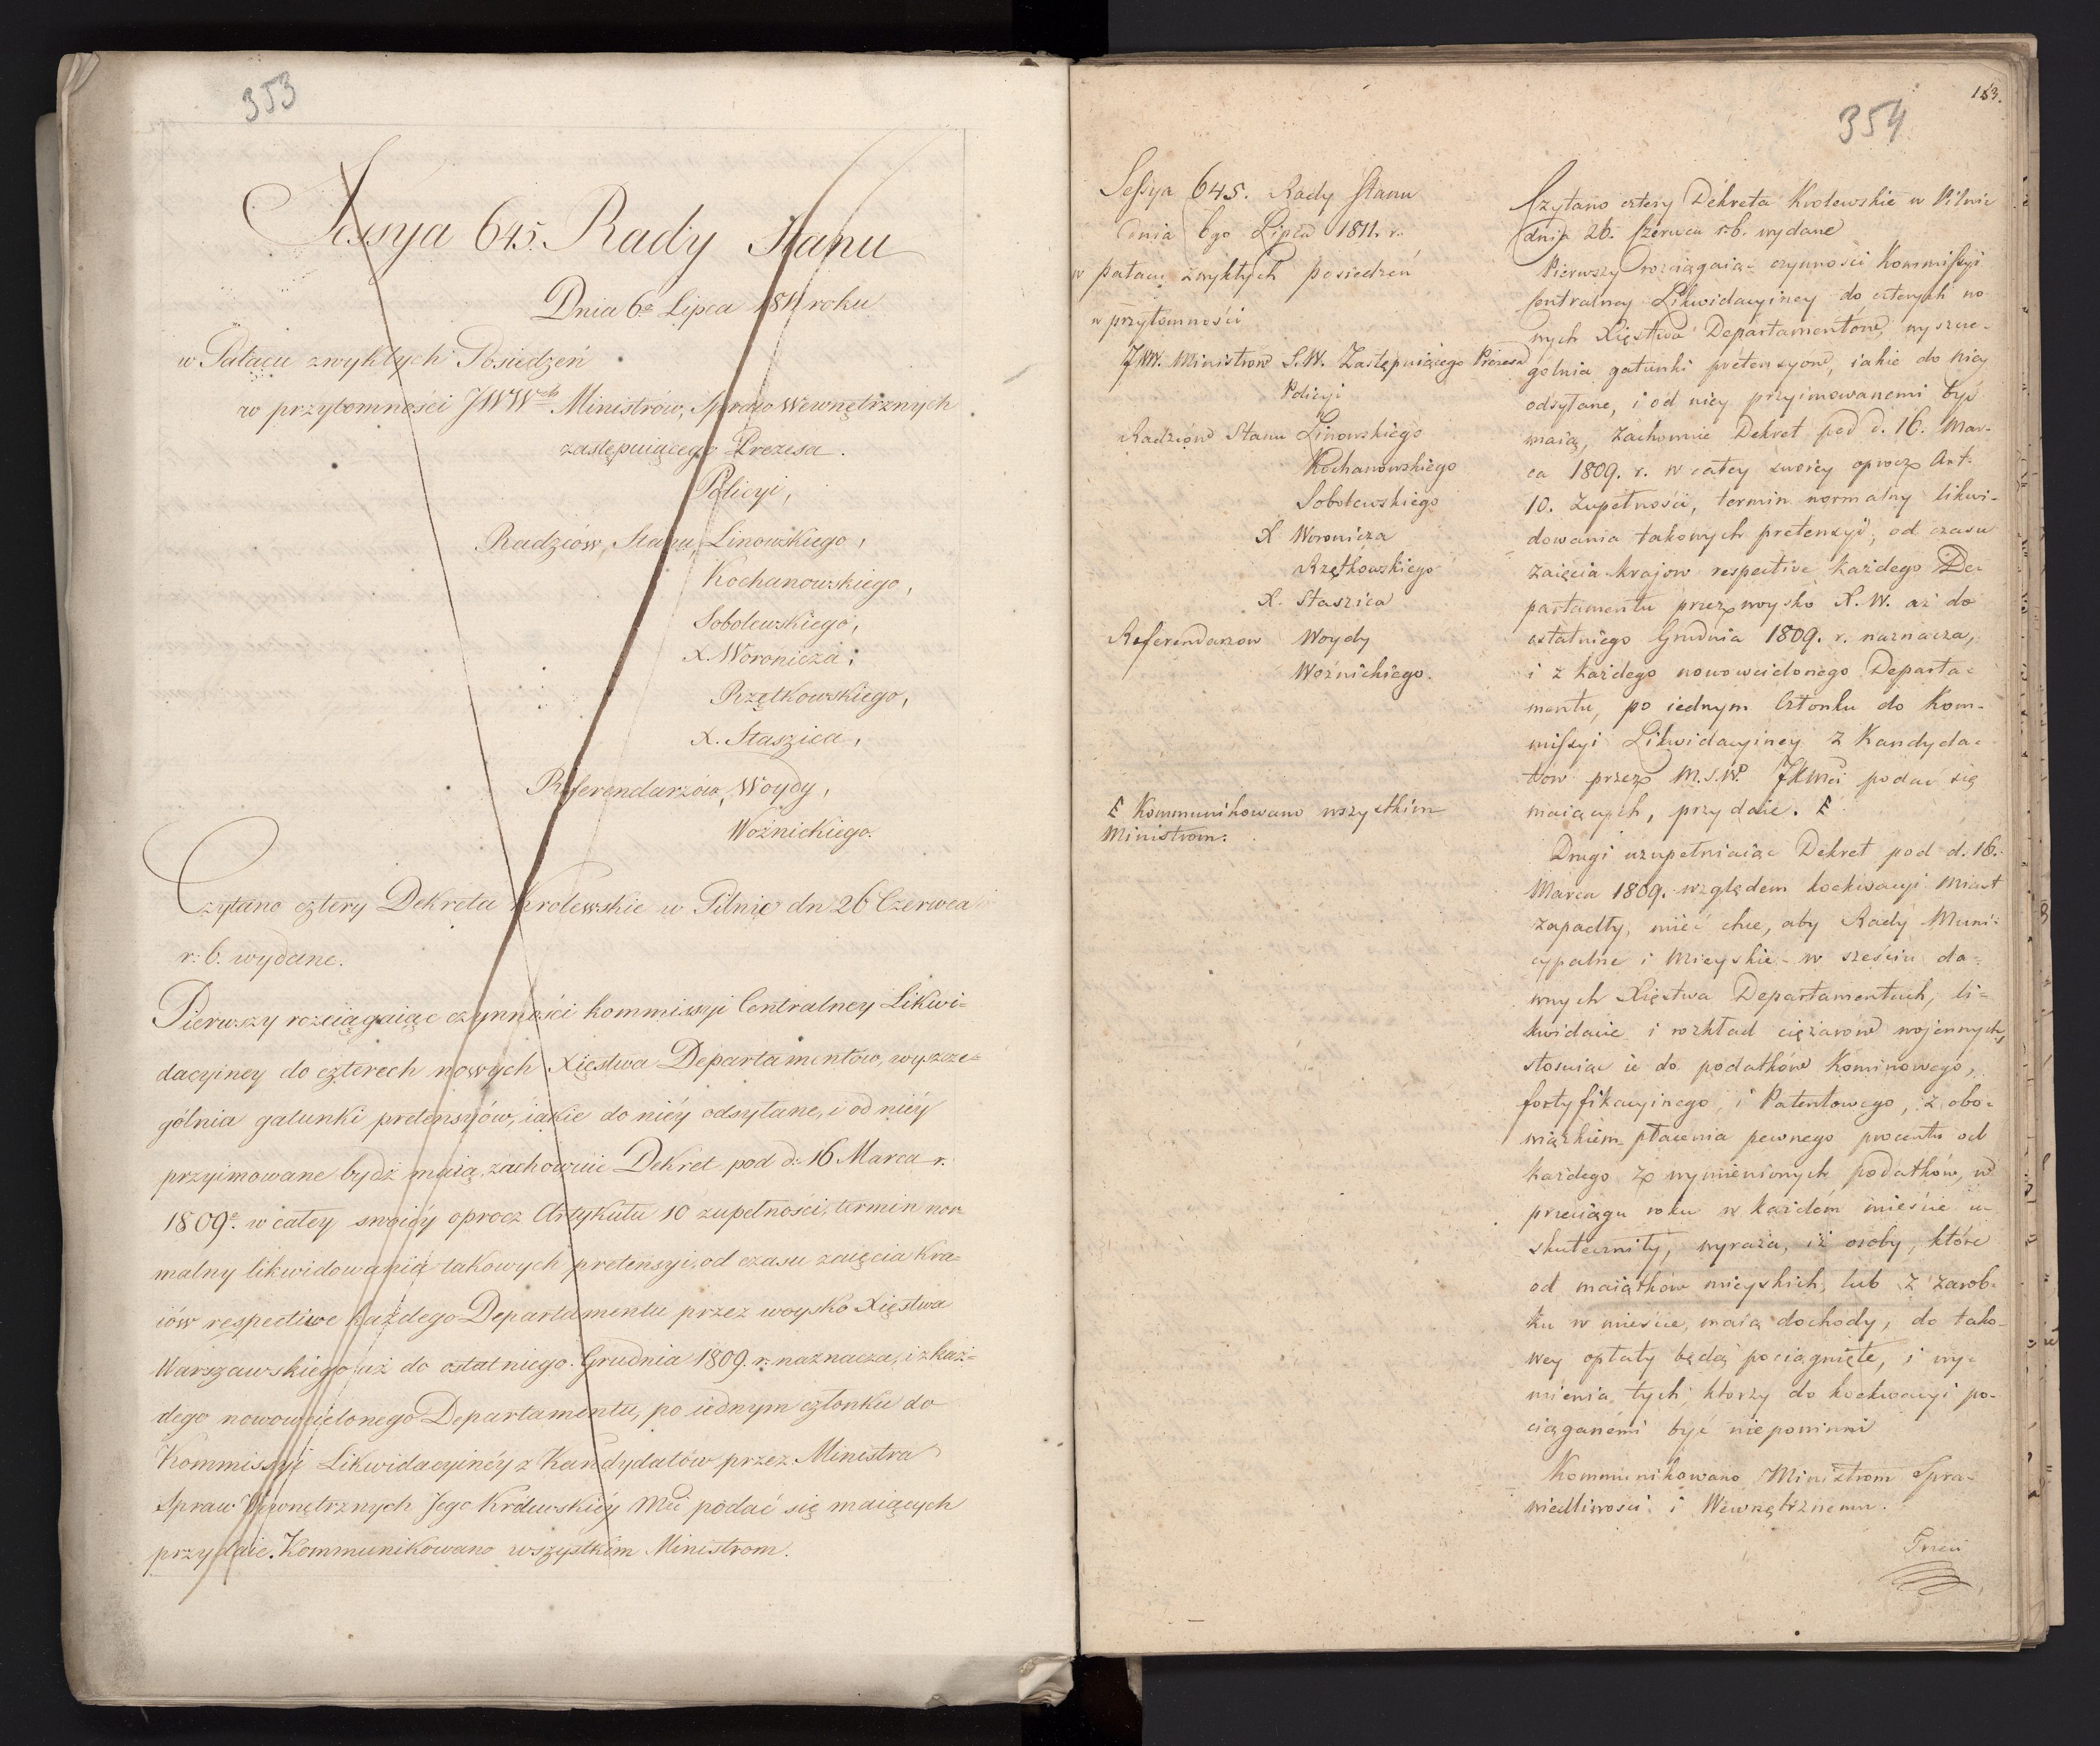 353
Sessya 645. Rady Stanu
Dnia 6º Lipca 1811 roku
w Pałacu zwykłych Posiedzeń
w przytomności JWWch Ministrów, Spraw Wewnętrznych
zastępuiącego Prezesa.
Policyi,
Radzców, Stanu, Linowskiego,
Kochanowskiego,
Sobolewskiego,
X. Woronicza,
Rzętkowskiego,
X. Staszica,
Referendarzów, Woydy,
Woźnickiego.
Czytano cztery Dekreta Krolewskie w Pilnic dn 26 Czerwca
r: b. wydane.
Pierwszy rozciągaiąc czynności kommissyi Centralney Likwi=
dacyiney do czterech nowych Xięstwa Departamentów, wyszcze=
gólnia gatunki pretensyów, iakie do niéy odsyłane, i od niéy
przyimowane bydź maią, zachowuie Dekret pod d: 16 Marca r.
1809º. w całey swoiéy oprocz Artykułu 10 zupełności, termin nor=
malny likwidowania takowych pretensyi, od czasu zaięcia Kra=
iów respective każdego Departamentu przez woysko Xięstwa
Warszawskiego, aż do ostatniego Grudnia 1809. r. naznacza, i z każ=
dego nowowcielonego Departamentu, po iednym członku do
Kommissyi Likwidacyinéy z Kandydatów przez Ministra
Spraw Wewnętrznych Jego Królewskiéy Mci podać się maiących
przydaie. Kommunikowano wszystkim Ministrom.
153.
354
Sessya 645. Rady Stanu
Dnia 6go Lipca 1811. r.
w pałacu zwykłych posiedzeń
w przytomności
JWW. Ministrów S.W. Zastępuiącego Prezesa
Policyi
Radzców Stanu Linowskiego
Kochanowskiego
Sobolewskiego
X Woronicza
Rzętkowskiego
X. Staszica
Referendarzow Woydy
Woźnickiego.
E Kommunikowano wszystkim
Ministrom.
Czytano cztery Dekreta Krolewskie w Pilnic
dnia 26. Czerwca r.b. wydane
Pierwszy rozciągaiąc czynności Kommissyi
Centralney Likwidacyiney do czterych no-
wych Xięstwa Departamentów, wyszcze-
gólnia gatunki pretensyow, iakie do niey
odsyłane, i od niey przyimowanemi być
maią, zachowuie Dekret pod d. 16. Mar-
ca 1809. r. w całey swoiey oprocz Art.
10. Zupełności, termin normalny likwi-
dowania takowych pretensyi, od czasu
zaięcia krajow respective każdego De-
partamentu przez woysko X.W. aż do
ostatniego Grudnia 1809. r. naznacza,
i z każdego nowowcielonego Departa-
mentu, po iednym Członku do Kom-
missyi Likwidacyiney z Kandyda-
tow przez M.S.W. JKMci podać się
maiących, przydaie. E
Drugi uzupełniaiąc Dekret pod d. 16.
Marca 1809. względem koekwacyi Miast
zapadły, mieć chce, aby Rady Muni-
cypalne i Mieyskie w sześciu da-
wnych Xięstwa Departamentach, li-
kwidacie i rozkład ciężarow wojennych,
stosuiąc ie do podatków Kominowego,
fortyfikacyinego, i Patentowego, z obo-
wiązkiem płacenia pewnego procentu od
każdego z wymienionych podatków, w
przeciągu roku w każdém mieście u-
skuteczniły, wyraża, iż osoby, które
od maiątkow mieyskich, lub z zarob-
ku w mieście, maią dochody, do tako-
wey opłaty będą pociągnięte, i wy-
mienia tych, ktorzy do koekwacyi po-
ciąganémi być nie powinni
Kommunikowano Ministrom Spra-
wiedliwości i Wewnętrznemu.